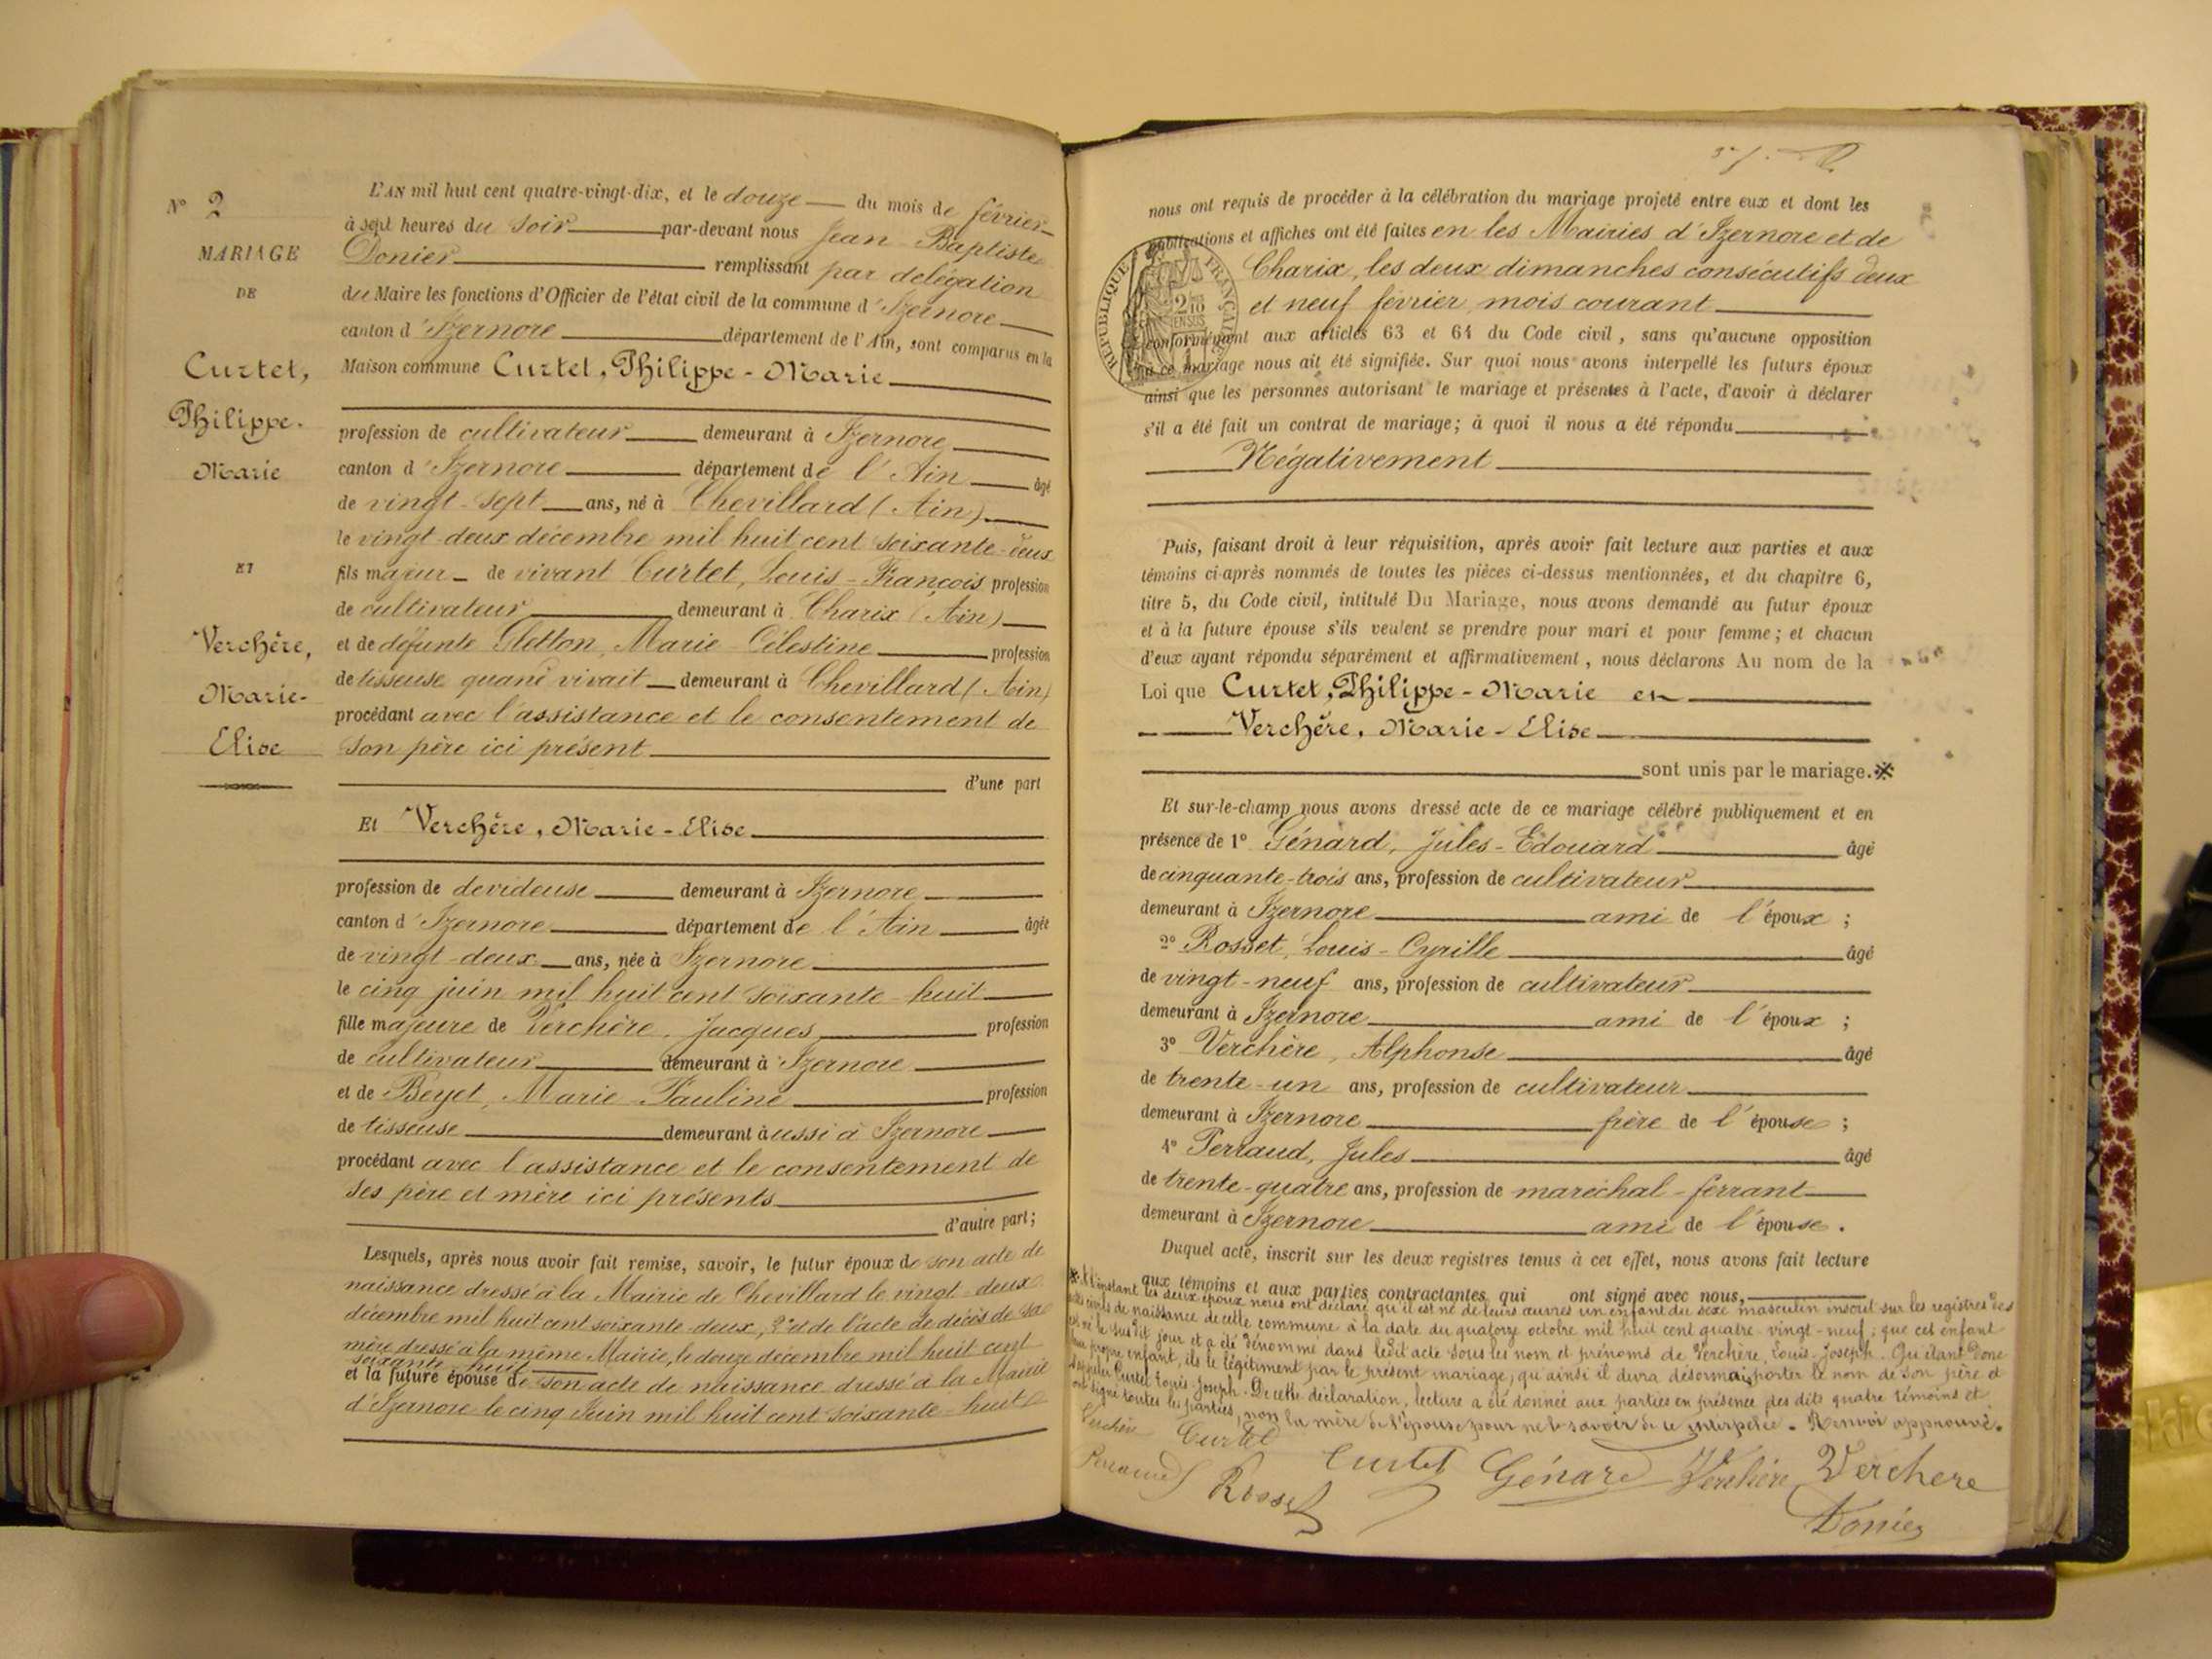 N° 2
MARIAGE
DE
Curtet,
Philippe-
Marie
ET
Verchère,
Marie-
Elise
L'AN mil huit cent quatre-vingt-dix, et le douze du mois de février
à sept heures du soir par-devant nous Jean Baptiste
Donier remplissant par délégation
du Maire les fonctions d'Officier de l'état civil de la commune d'Izernore
canton d'Izernore département de l'Ain, sont comparus en la
Maison commune Curtet, Philippe-Marie
profession de cultivateur demeurant à Izernore
canton d'Izernore département de l'Ain âgé
de vingt-sept ans, né à Chevillard (Ain)
le vingt-deux décembre mil huit cent soixante-deux
fils majeur de vivant Curtet, Louis-François profession
de cultivateur demeurant à Charix (Ain)
et de défunte Marie-Célestine profession
de tisseuse quand vivait demeurant à Chevillard (Ain)
procédant avec l'assistance et le consentement de
son père ici présent
d'une part
Et Verchère, Marie-Elise
profession de devideuse demeurant à Izernore
canton d'Izernore département de l'Ain âgée
de vingt-deux ans, née à Izernore
le cinq juin mil huit cent soixante-huit
fille majeure de Verchère, Jacques profession
de cultivateur demeurant à Izernore
et de Beyet, Marie-Pauline profession
de tisseuse demeurant aussi à Izernore
procédant avec l'assistance et le consentement de
ses père et mère ici présents
d'autre part;
Lesquels, après nous avoir fait remise, savoir, le futur époux de son acte de
naissance dressé à la Mairie de Chevillard le vingt-deux
décembre mil huit cent soixante-deux, 2° et de l'acte de décès de sa
mère dressé à la même Mairie, le douze décembre mil huit cent
soixante-huit
et la future épouse de son acte de naissance dressé à la Mairie
d'Izernore le cinq Juin mil huit cent soixante-huit
nous ont requis de procéder à la célébration du mariage projeté entre eux et dont les
publications et affiches ont été faites en les Mairies d'Izernore et de
Charix, les deux dimanches consécutifs deux
et neuf février, mois courant
RÉPUBLIQUE FRANÇAISE
conformément aux articles 63 et 64 du Code civil, sans qu'aucune opposition
à ce mariage nous ait été signifiée. Sur quoi nous avons interpellé les futurs époux
ainsi que les personnes autorisant le mariage et présentes à l'acte, d'avoir à déclarer
s'il a été fait un contrat de mariage; à quoi il nous a été répondu
Négativement
Puis, faisant droit à leur réquisition, après avoir fait lecture aux parties et aux
témoins ci-après nommés de toutes les pièces ci-dessus mentionnées, et du chapitre 6,
titre 5, du Code civil, intitulé Du Mariage, nous avons demandé au futur époux
et à la future épouse s'ils veulent se prendre pour mari et pour femme; et chacun
d'eux ayant répondu séparément et affirmativement, nous déclarons Au nom de la
Loi que Curtet, Philippe-Marie et
Verchère, Marie-Elise
sont unis par le mariage. ※
Et sur-le-champ nous avons dressé acte de ce mariage célébré publiquement et en
présence de 1° Génard, Jules-Edouard âgé
de cinquante-trois ans, profession de cultivateur
demeurant à Izernore ami de l'époux;
2° Rosset, Louis-Cyrille âgé
de vingt-neuf ans, profession de cultivateur
demeurant à Izernore ami de l'époux;
3° Verchère, Alphonse âgé
de trente-un ans, profession de cultivateur
demeurant à Izernore frère de l'épouse;
4° Perraud, Jules âgé
de trente-quatre ans, profession de maréchal-ferrant
demeurant à Izernore ami de l'épouse.
Duquel acte, inscrit sur les deux registres tenus à cet effet, nous avons fait lecture
aux témoins et aux parties contractantes qui ont signé avec nous,
※ A l'instant les deux époux nous ont déclaré qu'il est né de leurs œuvres un enfant du sexe masculin inscrit sur les registres des
actes civils de naissance de cette commune à la date du quatorze octobre mil huit cent quatre-vingt-neuf; que cet enfant
est né le susdit jour et a été dénommé dans ledit acte sous les nom et prénoms de Verchère, Louis-Joseph. Qu'étant donc
leur propre enfant, ils le légitiment par le présent mariage, qu'ainsi il devra désormais porter le nom de son père et
s'appeler Curtet Louis-Joseph. De cette déclaration, lecture a été donnée aux parties en présence des dits quatre témoins et
ont signé toutes les parties, non la mère de l'épouse pour ne le savoir de ce interpelée. Renvoi approuvé.
Verchère Curtet Curtet Génard Verchère Verchere
Perraud Rosset Donier